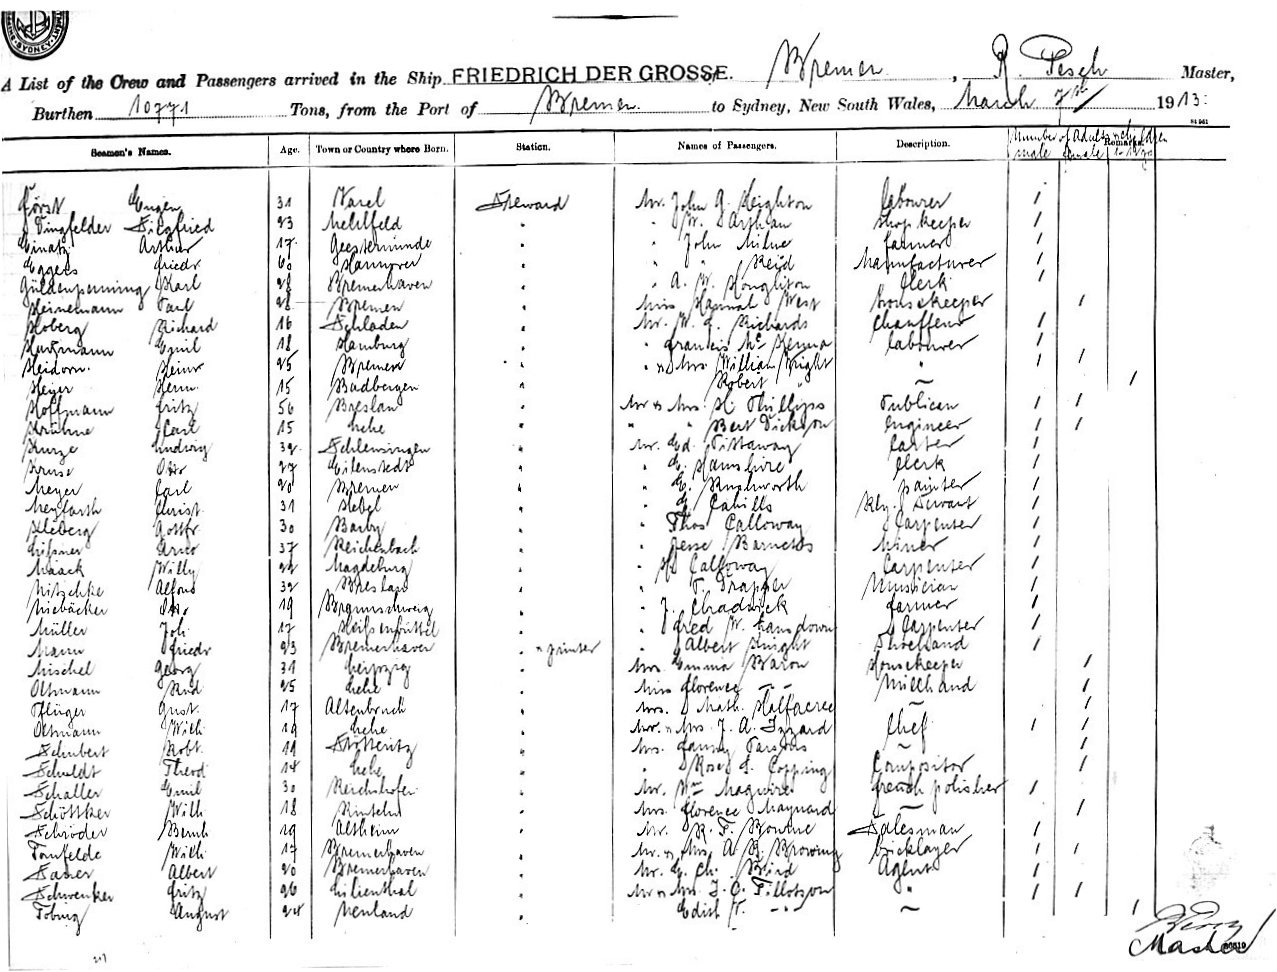 SYDNEY
A List of the Crew and Passengers arrived in the Ship FRIEDRICH DER GROSSE. of Bremen, R. Pesch Master,
Burthen 10771 Tons, from the Port of Bremen to Sydney, New South Wales, March 7th 1913
Seamen's Names. Age. Town or Country where Born. Station. Names of Passengers. Description. Number of Adults children Remarks
male female
Först Eugen 31 Varel Steward Mr. John G. Keighton labourer 1
Dingfelder Siegfried 23 Mehlfeld " " W. Arthan shop keeper 1
Arthur 17 Geestemünde " " John Milne farmer 1
Eggers Friedr 60 Hannover " " " Reid Manufacturer 1
Güldenpenning Karl 28 Bremerhaven " " A. W. Houghton Clerk 1
Heinemann Paul 28 Bremen " Miss Hannah West housekeeper 1
Hoberg Richard 16 Schladen " Mr. W. G. Richards Chauffeur 1
Hartmann Emil 18 Hamburg " " Francis Mc Kenna labourer 1
Heidorn Heinr 25 Bremen " " & Mrs William Wright " 1 1
Heyer Herm. 15 Badbergen " Robert " — 1
Hoffmann Fritz 56 Breslau " Mr & Mrs H. Phillips Publican 1 1
Krühne Carl 15 Lehe " " " Bert Dickson Engineer 1 1
Kurze Ludwig 32 Schleusingen " Mr. Ed. Pittaway Carter 1
Kruse Otto 27 Eilenstedt " " G. Hamshire Clerk 1
Meyer Carl 20 Bremen " " E. Rushworth painter 1
Meyfarth Christ. 31 " " G. Cahills Rly. Servant 1
Kleberg Gottfr. 30 Barby " " Thos Calloway Carpenter 1
Lissner Arno 37 Reichenbach " " Jesse Miner 1
Maack Willy 22 Magdeburg " " Calloway Carpenter 1
Nitschke Alfons 32 Breslau " " T. Trapper Musician 1
Niebäcker Otto 19 Braunschweig " " J. Chadwick farmer 1
Müller Joh. 17 " " Fred W. Lansdown Carpenter 1
Mann Friedr 23 Bremerhaven " " printer " Albert Knight 1
Mischel Georg 31 Leipzig " Mrs Emma Baron Housekeeper 1
Oltmann Rud 25 Lehe " Miss Florence — " — Millhand 1
Pflüger Gust. 17 Altenbruch " Mrs. Math. Halfacree — 1
Oltmann Willi 19 Lehe " Mr. & Mrs. J. A. Izzard Chef 1 1
Schubert Robt. 19 Stötteritz " Mrs. Fanny Parsons — 1
Schuldt Theod 14 Lehe " " Rose E. Copping Compositor 1
Schaller Emil 30 Reichshofen " Mr. Wm Maguire French polisher 1
Schöttker Willi 18 Rinteln " Mrs. Florence Maynard — 1
Schröder Bernh 19 Altheim " Mr. R. F. Bourne Salesman 1
Tonfelde Willi 17 Bremerhaven " Mr. & Mrs. A. R. Browning bricklayer 1 1
Albert 20 Bremerhaven " Mr. G. Ch. Bird Agent 1
Schwenker Fritz 26 Lilienthal " Mr & Mrs. J. C. Tillotson " 1 1
Toburg August 24 Neuland " Edith T. — " — — 1
Pesch
Master